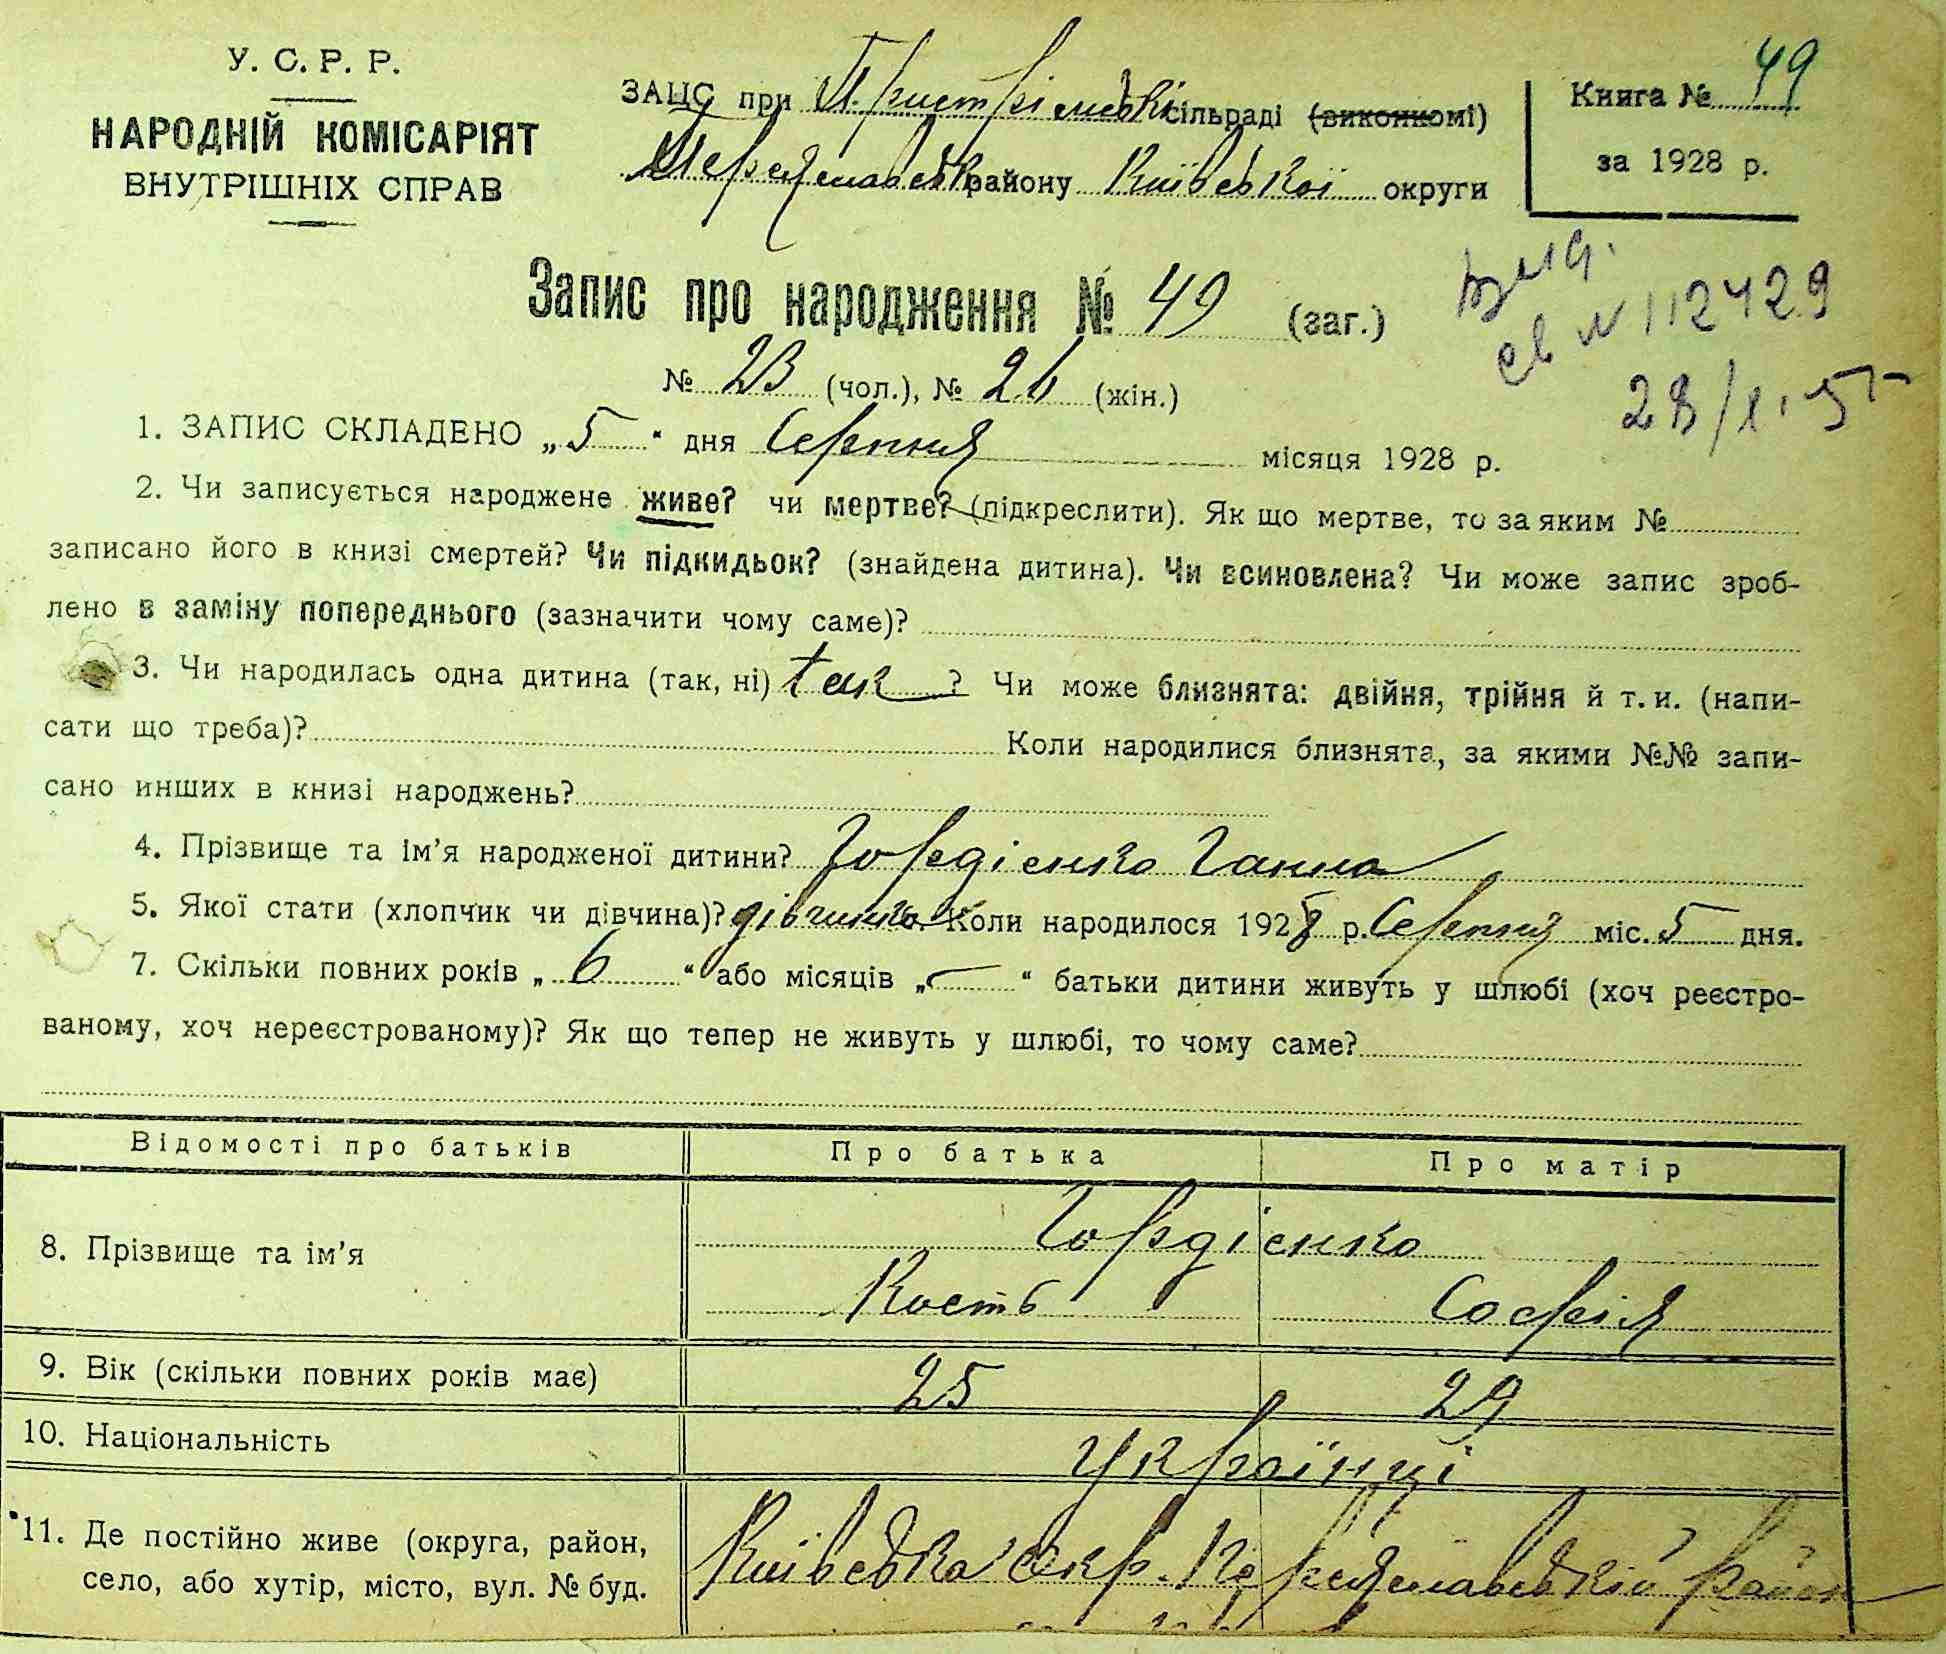 У. С. Р. Р.
НАРОДНІЙ КОМІСАРІЯТ
ВНУТРІШНІХ СПРАВ
ЗАЦС при Пристромській сільраді (виконкомі)
Переяславськ району Київської округи
Книга № 49
за 1928 р.
Запис про народження № 49 (заг.)
№ 23 (чол.), № 26 (жін.)
св N 112429
28/X
1. ЗАПИС СКЛАДЕНО „5“ дня Серпня місяця 1928 р.
2. Чи записується народжене живе? чи мертве? (підкреслити). Як що мертве, то за яким №
записано його в книзі смертей? Чи підкидьок? (знайдена дитина). Чи всиновлена? Чи може запис зроб-
лено в заміну попереднього (зазначити чому саме)?
3. Чи народилась одна дитина (так, ні) так ? Чи може близнята: двійня, трійня й т. и. (напи-
сати що треба)? Коли народилися близнята, за якими №№ запи-
сано инших в книзі народжень?
4. Прізвище та ім’я народженої дитини? Гордієнко Ганна
5. Якої стати (хлопчик чи дівчина)? дівчинка Коли народилося 1928 р. Серпня міс. 5 дня.
7. Скільки повних років „6“ або місяців „—“ батьки дитини живуть у шлюбі (хоч реєстро-
ваному, хоч нереєстрованому)? Як що тепер не живуть у шлюбі, то чому саме?
Відомості про батьків Про батька Про матір
8. Прізвище та ім’я Гордієнко
Кость Софія
9. Вік (скільки повних років має) 25 29
10. Національність Українці
11. Де постійно живе (округа, район, Київська Окр. Переяславський район
село, або хутір, місто, вул. № буд.